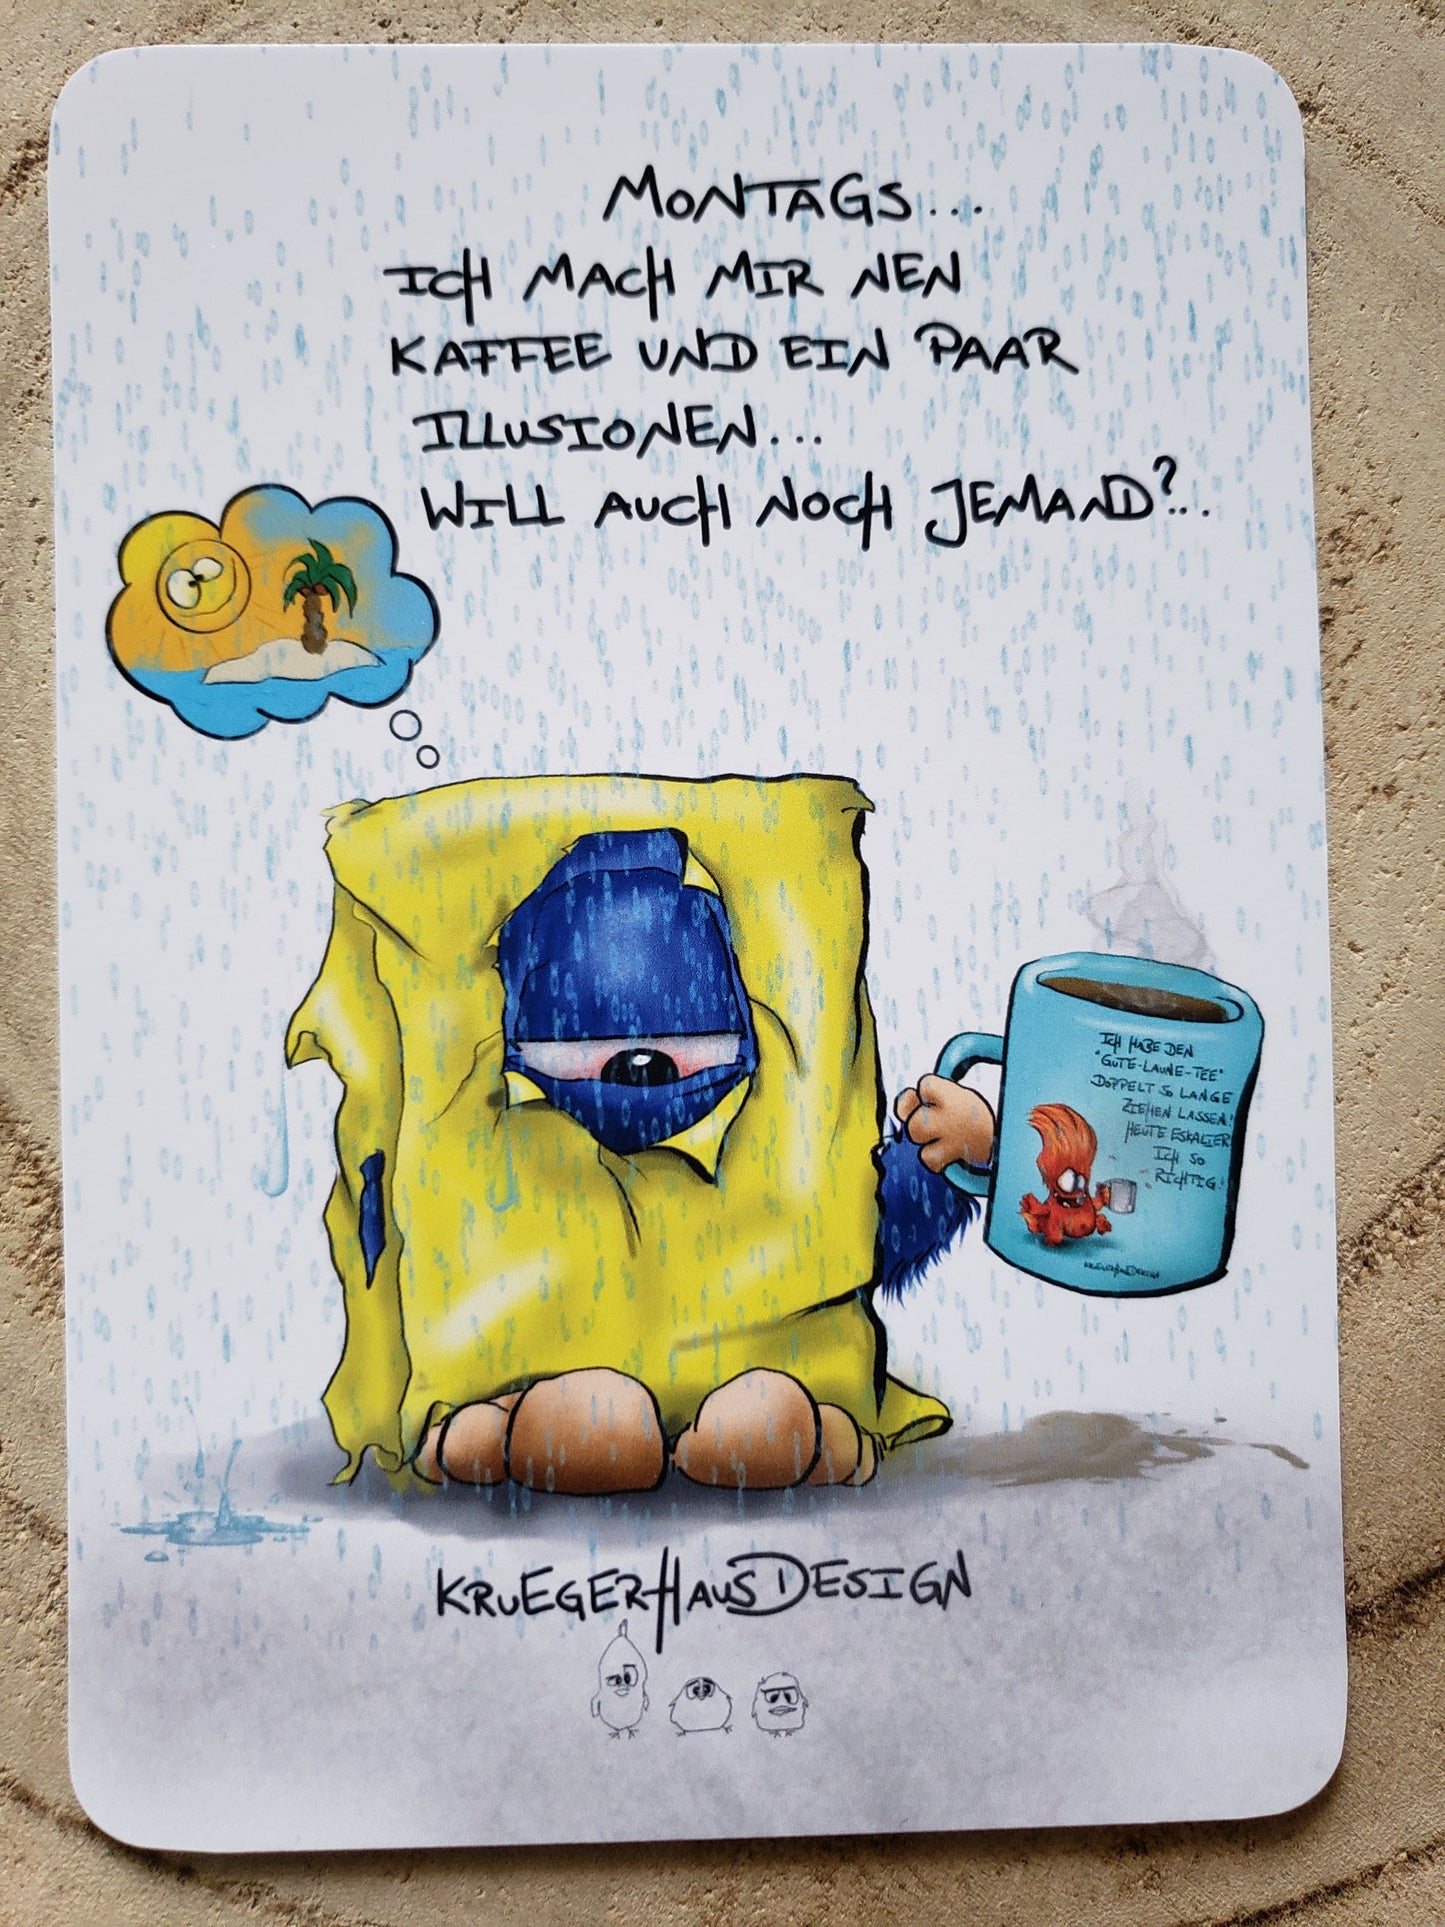 MONTAGS...
ICH MACH MIR NEN
KAFFEE UND EIN PAAR
ILLUSIONEN...
WILL AUCH NOCH JEMAND?...
ICH HABE DEN
"GUTE-LAUNE-TEE"
DOPPELT SO LANGE
ZIEHEN LASSEN!
HEUTE ESKALIER
ICH SO
RICHTIG!
KRUEGERHAUSDESIGN
KRUEGERHAUSDESIGN